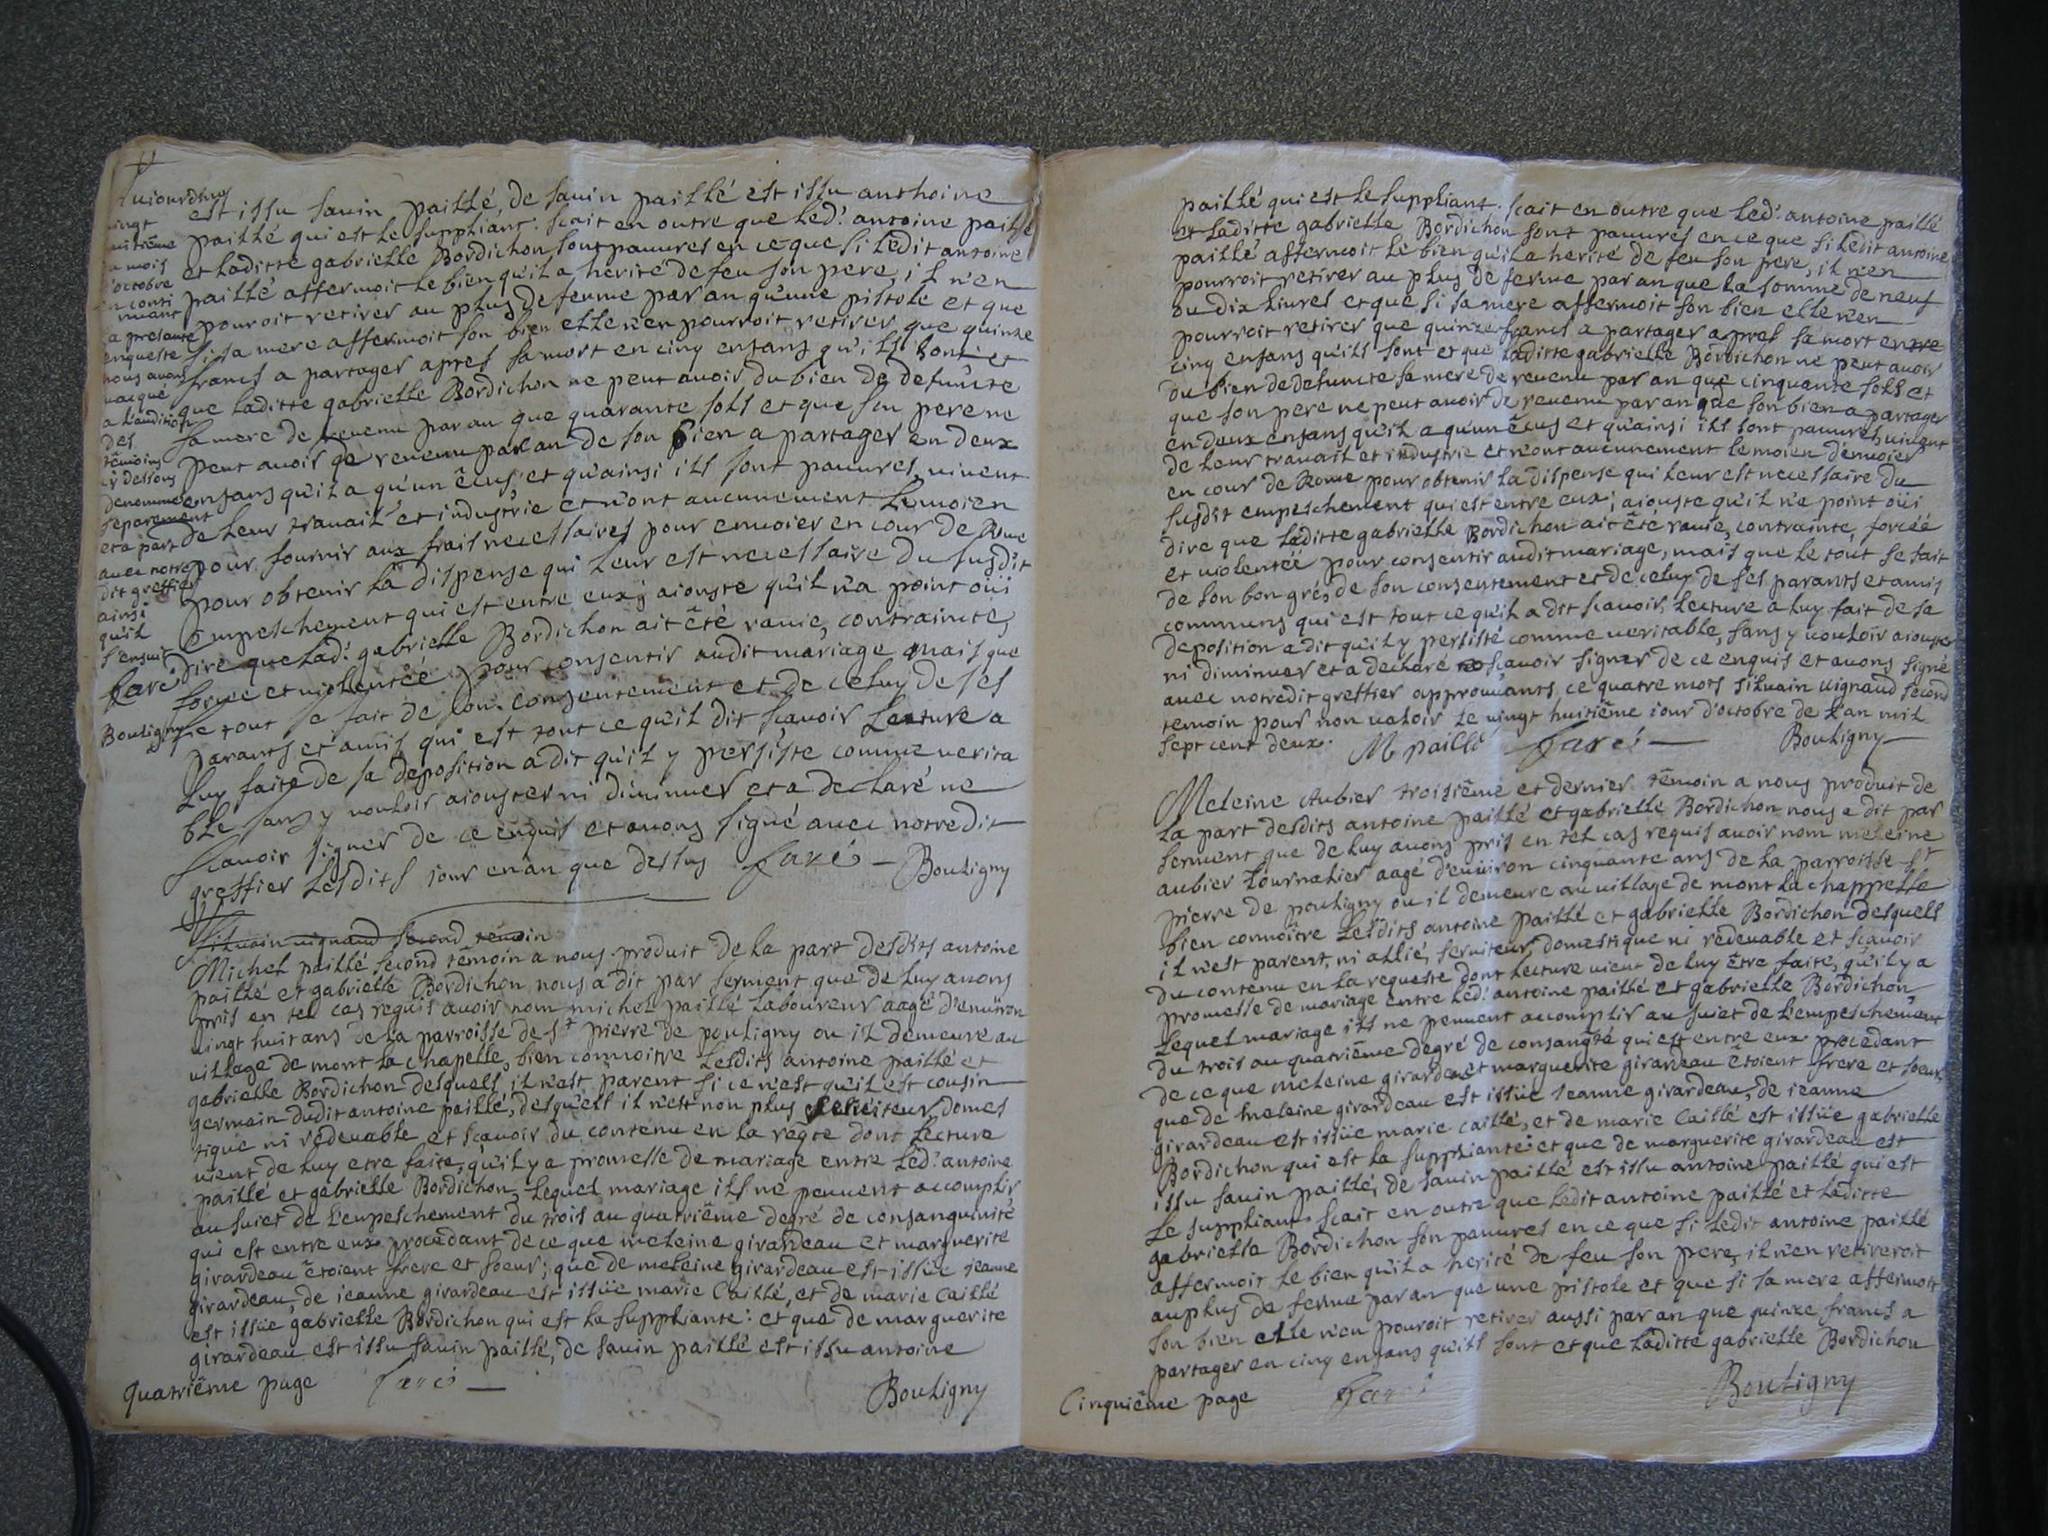 Aujourdhuy
vingt
huitiême
du mois
d'octobre
en conti
nuant
la presante
enqueste
nous avons
vacqué
a l'audition
des
têmoins
cy dessous
denommés
separement
et a part
avec notre
dit greffier
ainsi
qu'il
s'ensuit
Faré
Bouligny
est issu savin paillé, de savin paillé est issu anthoine
paillé qui est le suppliant: scait en outre que led.t antoine paillé
et laditte gabrielle Bordichon sont pauvres en ce que si ledit antoine
paillé affermoit le bien qu'il a herité de feu son pere, il n'en
pouroit retirer au plus de ferme par an qu'une pistole et que
si sa mere affermoit son bien elle n'en pourroit retirer que quinze
francs a partager apres sa mort en cinq enfans qu'ils sont et
que laditte gabrielle Bordichon ne peut avoir du bien de defuncte
sa mere de revenu par an que quarante sols et que son pere ne
peut avoir de revenu par an de son bien a partager en deux
enfans qu'il a qu'un êcus et qu'ainsi ils sont pauvres, vivent
de leur travail et industrie et n'ont aucunement le moien
pour fournir aux frais necessaires pour envoier en cour de Rome
pour obtenir la dispense qui leur est necessaire du susdit
Empeschement qui est entre eux; aiouste qu'il n'a point oüi
dire que lad.t gabrielle Bordichon ait êté ravie, contrainte,
forcée et violentée pour consentir audit mariage mais que
le tout se fait de son consentement et de celuy de ses
parants et amis qui est tout ce qu'il dit scavoir Lecture a
luy faite de sa deposition a dit qu'il y persiste comme verita
ble sans y vouloir aiouster ni diminuer et a declaré ne
scavoir signer de ce enquis et avons signé avec notredit
greffier lesdits iour en an que dessus Faré Bouligny
Silvain vignaud second temoin
Michel paillé second têmoin a nous produit de la part desdits antoine
paillé et gabrielle Bordichon nous a dit par serment que de luy avons
pris en tel cas requis avoir nom michel paillé laboureur aagé d'environ
vingt huit ans de la parroisse de St pierre de pouligny ou il demeure au
village de mont la chapelle, bien connoitre lesdits antoine paillé et
gabrielle Bordichon desquels il n'est parent si ce n'est qu'il est cousin
germain dudit antoine paillé, desquels il n'est non plus serviteur, domes
tique ni redevable et scavoir du contenu en la reqte dont lecture
vient de luy etre faite, qu'il y a promesse de mariage entre led.t antoine
paillé et gabrielle Bordichon, lequel mariage ils ne peuvent accomplir
au suiet de l'empeschement du trois au quatriême degré de consanguinité
qui est entre eux procêdant de ce que meleine girardeau et marguerite
girardeau êtoient frere et soeur; que de meleine girardeau est issüe jeanne
girardeau, de ieanne girardeau est issüe marie Caillé, et de marie Caillé
est issüe gabrielle Bordichon qui est la suppliante: et que de marguerite
girardeau est issu savin paillé, de savin paillé est issu antoine
quatriême page Faré Bouligny
paillé qui est le suppliant. scait en outre que led.t antoine paillé
et laditte gabrielle Bordichon sont pauvres en ce que si ledit antoine
paillé affermoit le bien qu'il a herité de feu son pere, il n'en
pourroit retirer au plus de ferme par an que la somme de neuf
ou dix livres et que si sa mere affermoit son bien elle n'en
pourroit retirer que quinze francs a partager apres sa mort entre
cinq enfans qu'ils sont et que laditte gabrielle Bordichon ne peut avoir
du bien de defuncte sa mere de revenu par an que cinquante sols et
que son pere ne peut avoir de revenu par an que son bien a partager
en deux enfans qu'il a qu'un êcus et qu'ainsi ils sont pauvres vivent
de leur travail et industrie et n'ont aucunement le moien d'envoier
en cour de Rome pour obtenir la dispense qui leur est necessaire du
susdit empeschement qui est entre eux; aiouste qu'il n'e point oüi
dire que laditte gabrielle Bordichon ait êté ravie, contrainte, forcée
et violentée pour consentir audit mariage, mais que le tout se fait
de son bon gré, de son consentement et de celuy de ses parants et amis
communs qui est tout ce qu'il a dit scavoir, Lecture a luy fait de sa
deposition a dit qu'il y persiste comme veritable, sans y vouloir aiouster
ni diminuer et a declaré scavoir signer de ce enquis et avons signé
avec notredit greffier approuvants ce quatre mots silvain vignaud second
temoin pour non valoir le vingt huitiême iour d'octobre de l'an mil
sept cent deux. M paillé Faré Bouligny
Meleine Aubier troisiême et dernier têmoin a nous produit de
la part desdits antoine paillé et gabrielle Bordichon nous a dit par
serment que de luy avons pris en tel cas requis avoir nom meleine
aubier Journalier aagé d'environ cinquante ans de la parroisse St
pierre de pouligny ou il demeure au village de mont la chappelle
bien connoître lesdits antoine paillé et gabrielle Bordichon desquels
il n'est parent, ni allié, serviteur, domestique ni redevable et scavoir
du contenu en la requeste dont lecture vient de luy être faite, qu'il y a
promesse de mariage entre led.t antoine paillé et gabrielle Bordichon,
lequel mariage ils ne peuvent accomplir au suiet de l'empeschement
du trois au quatriême degré de consangté qui est entre eux procêdant
de ce que meleine girardeau et marguerite girardeau êtoient frere et soeur,
que de meleine girardeau est issüe jeanne girardeau, de ieanne
girardeau est issüe marie caillé, et de marie Caillé est issüe gabrielle
Bordichon qui est la suppliante: et que de marguerite girardeau est
issu savin paillé, de savin paillé est issu antoine paillé qui est
le suppliant. scait en outre que ledit antoine paillé et laditte
gabrielle Bordichon son pauvres en ce que si ledit antoine paillé
affermoit le bien qu'il a herité de feu son pere, il n'en retireroit
au plus de ferme par an que une pistole et que si sa mere affermoit
son bien elle n'en pouroit retirer aussi par an que quinze francs a
partager en cinq enfans qu'ils sont et que laditte gabrielle Bordichon
Cinquiême page Faré Bouligny